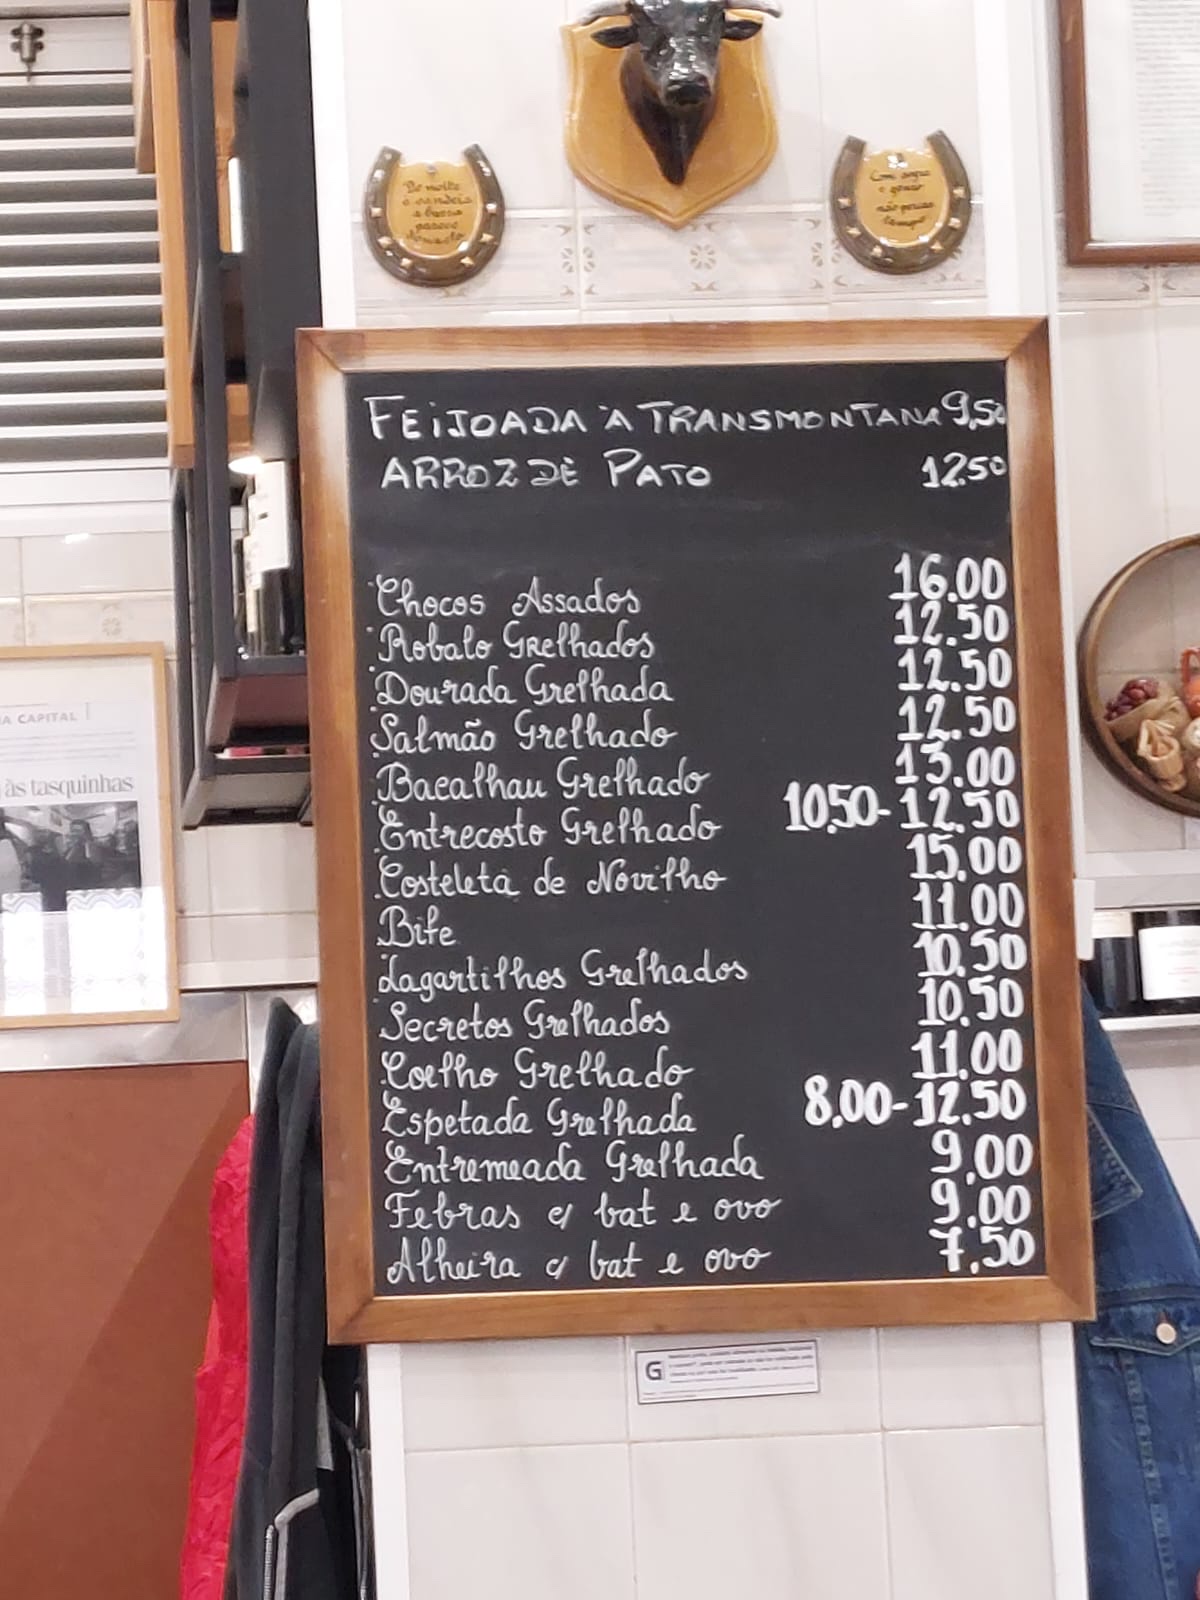 De noite
à candeia
a burra
parece
donzela
Com augua
não percas
tempo
A CAPITAL
às tasquinhas
FEIJOADA À TRANSMONTANA 9,50
ARROZ DE PATO 12,50
Chocos Assados 16.00
Robalo Grelhados 12.50
Dourada Grelhada 12.50
Salmão Grelhado 12.50
Bacalhau Grelhado 15.00
Entrecosto Grelhado 10,50-12.50
Costeleta de Novilho 15.00
Bife 11.00
Lagartilhos Grelhados 10.50
Secretos Grelhados 10.50
Coelho Grelhado 11.00
Espetada Grelhada 8.00-12.50
Entremeada Grelhada 9.00
Febras c/ bat e ovo 9.00
Alheira c/ bat e ovo 7.50
G